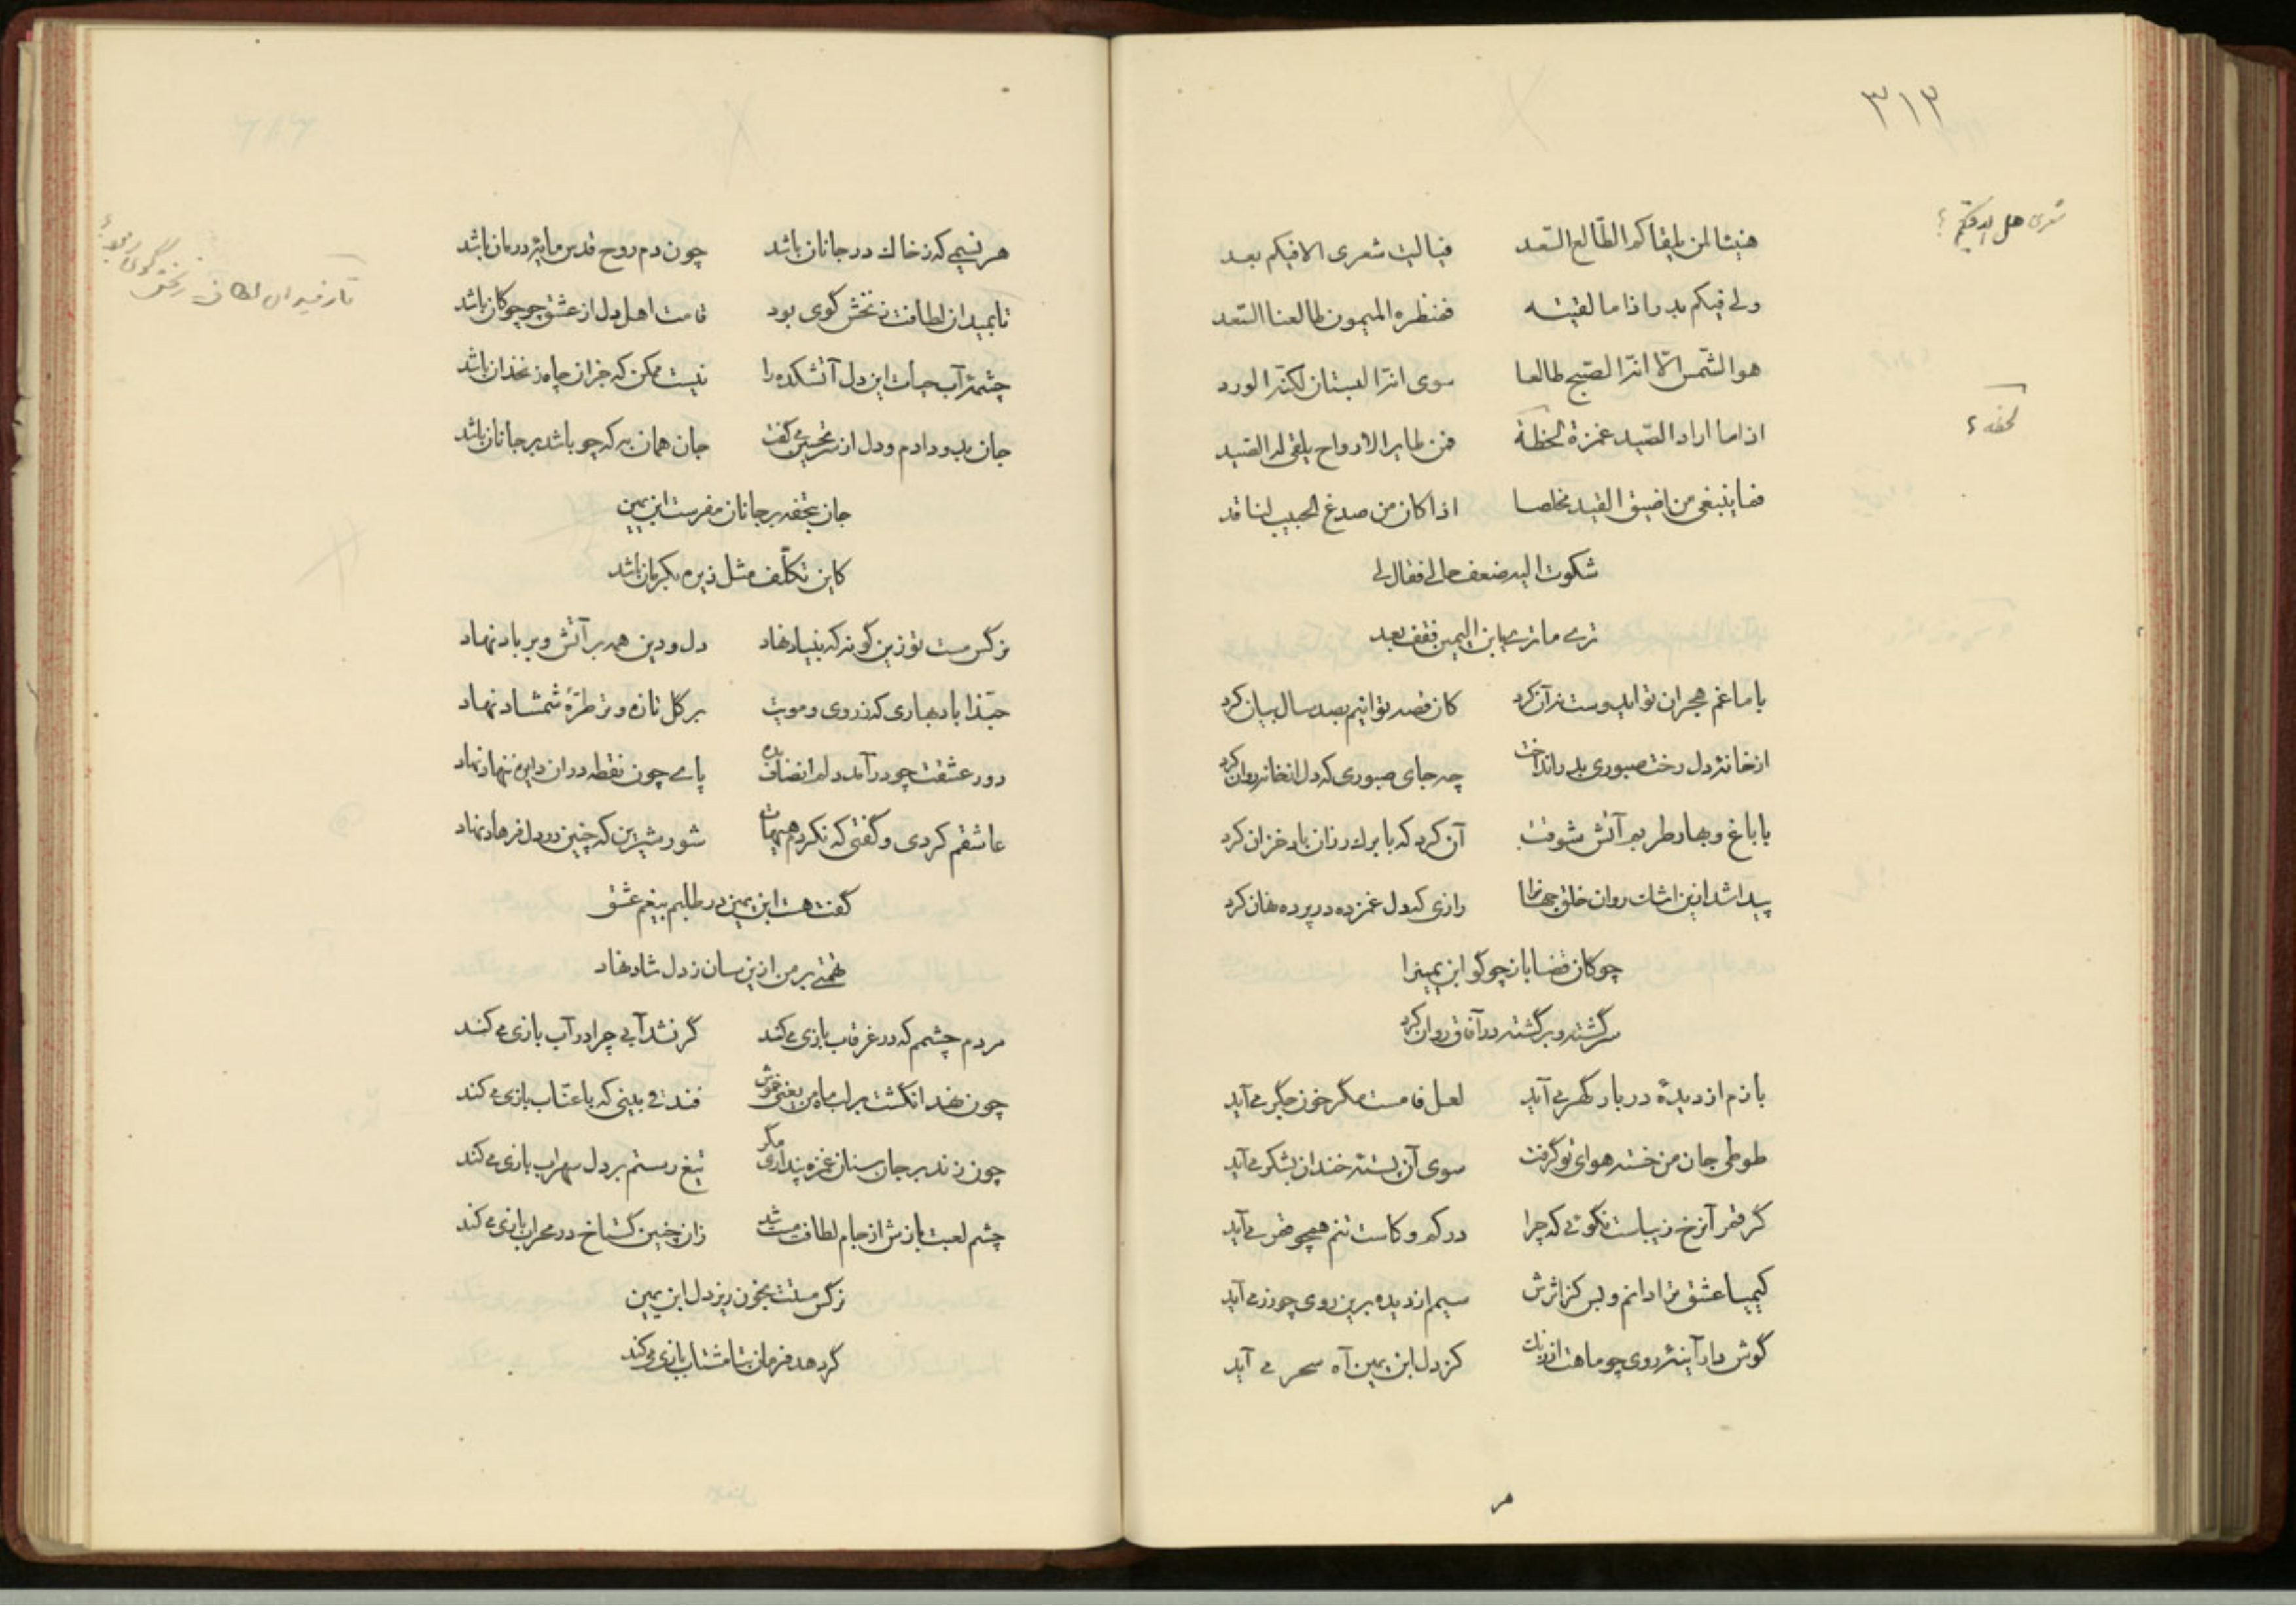 ۳۱۳
شعری هل الاقیکم ؟
هنیئا لمن یلقاکم الطالع السّعد فیالیت شعری الاقیکم بعد
ولی فیکم بدر اذا ما لقیته فمنظره المیمون طالعنا السّعد
هو الشّمس الّا انّه الصّبح طالعا سوی انّه البستان لکنّه الورد
لحظه ؟
اذا ما اراد الصّید غمزة لحظة فمن طایر الارواح یلقی له الصّید
فما ینبغی من اضیق القید مخلصا اذا کان من صدغ الحبیب لنا قد
شکوت الیه ضعف حالی فقال لی
تری ما تری یا بن الیمین فقف بعد
با ما غم هجران تو ایدوست نه آن کرد کان قصه توانیم بصد سال بیان کرد
از خانهٔ دل رخت صبوری بدر انداخت چه جای صبوری که دل از خانه روان کرد
با باغ و بهار طربم آتش شوقت آن کرد که با برک رزان باد خزان کرد
پیدا شد ازین اشک روان خلق جهانرا رازی که دل غمزده در پرده نهان کرد
چوکان قضا باز چو گو ابن یمینرا
سرگشته و برگشته در آفاق روان کرد
بازم از دیدهٔ دربار گهر می آید لعل فامست مگر خون جگر می آید
طوطی جان من خسته هوای تو گرفت سوی آن پستهٔ خندان بشکر می آید
گر قمر آنرخ زیباست نکوئی که چرا در کم و کاست تنم همچو قمر می آید
کیمیا عشق ترا دانم و بس کز اثرش سیم از دیده برین روی چو زر می آید
گوش دار آینهٔ روی چو ماهت از زنک کز دل ابن یمین آه سحر می آید
هر
هر نسیمی که ز خاک در جانان باشد چون دم روح قدس مایهٔ درمان باشد
تا بمیدان لطافت زنخش گوی بود قامت اهل دل از عشق چو چوکان باشد
چشمهٔ آب حیات این دل آتشکده را نیست ممکن که جز آن چاه زنخدان باشد
جان بدو دادم و دل از سر تحسین می گفت جان همان به که چو باشد بر جانان باشد
جان بتحفه بر جانان مفرست ابن یمین
کاین تکلّف مثل زیره بکرمان باشد
نرگس مست تو زین گونه که بنیاد نهاد دل و دین همه بر آتش و بر باد نهاد
حبّذا باد بهاری که ز روی و مویت بر کل تازه و تر طرّهٔ شمشاد نهاد
دور عشقت چو در آمد دلم انصاف بده پای چون نقطه در ان دایره بنهاد نهاد
عاشقم کردی و گفتی که نکردم هیهات شور شیرین که چنین در دل فرهاد نهاد
گفت هست ابن یمین در طلبم بیغم عشق
تهمتی بر من ازین سان ز دل شاد نهاد
مردم چشمم که در غرقاب بازی می کند گر نشد آبی چرا در آب بازی می کند
چون نهد انگشت بر لب ماه من یعنی خموش فندقی بینی که با عنّاب بازی می کند
چون زند بر جان سنان غمزه پنداری مگر تیغ رستم بر دل سهراب بازی می کند
چشم لعبت بازش از جام لطافت مست شد زان چنین گستاخ در محراب بازی می کند
نرگس مستت بخون ریز دل ابن یمین
گر دهد فرمان بتا مشتاب بازی می کند